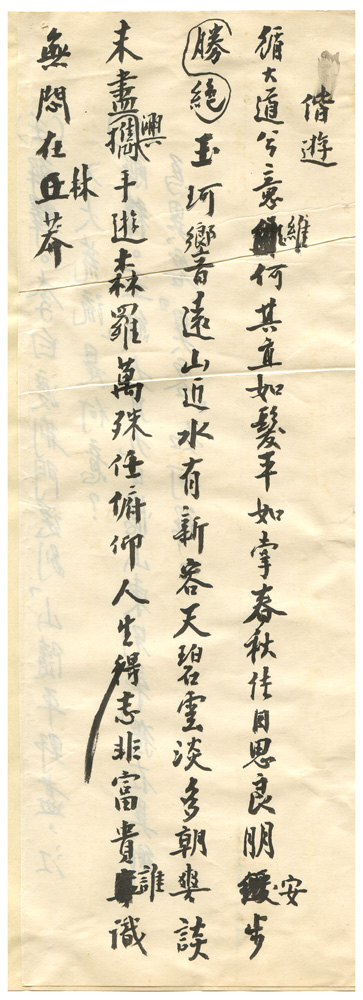 偕遊
循大道兮意維何其直如髮平如掌春秋佳日思良朋安步
勝絕玉珂鄉音遠山近水有新容天碧雲淡多朝爽談
未盡興攜手遊森羅萬殊任俯仰人生得志非富貴誰識
無悶在林莽